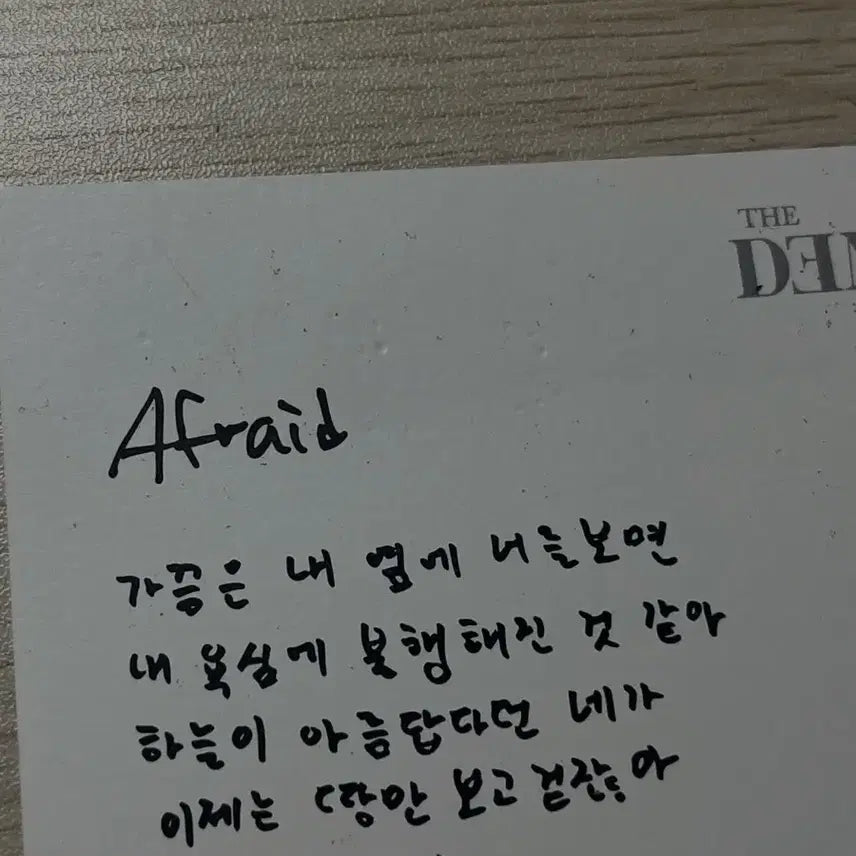 THE
Afraid
가끔은 내 옆에 너를보면
내 욕심에 불행해진 것 같아
하늘이 아름답다던 네가
이제는 땅만 보고 걷잖아